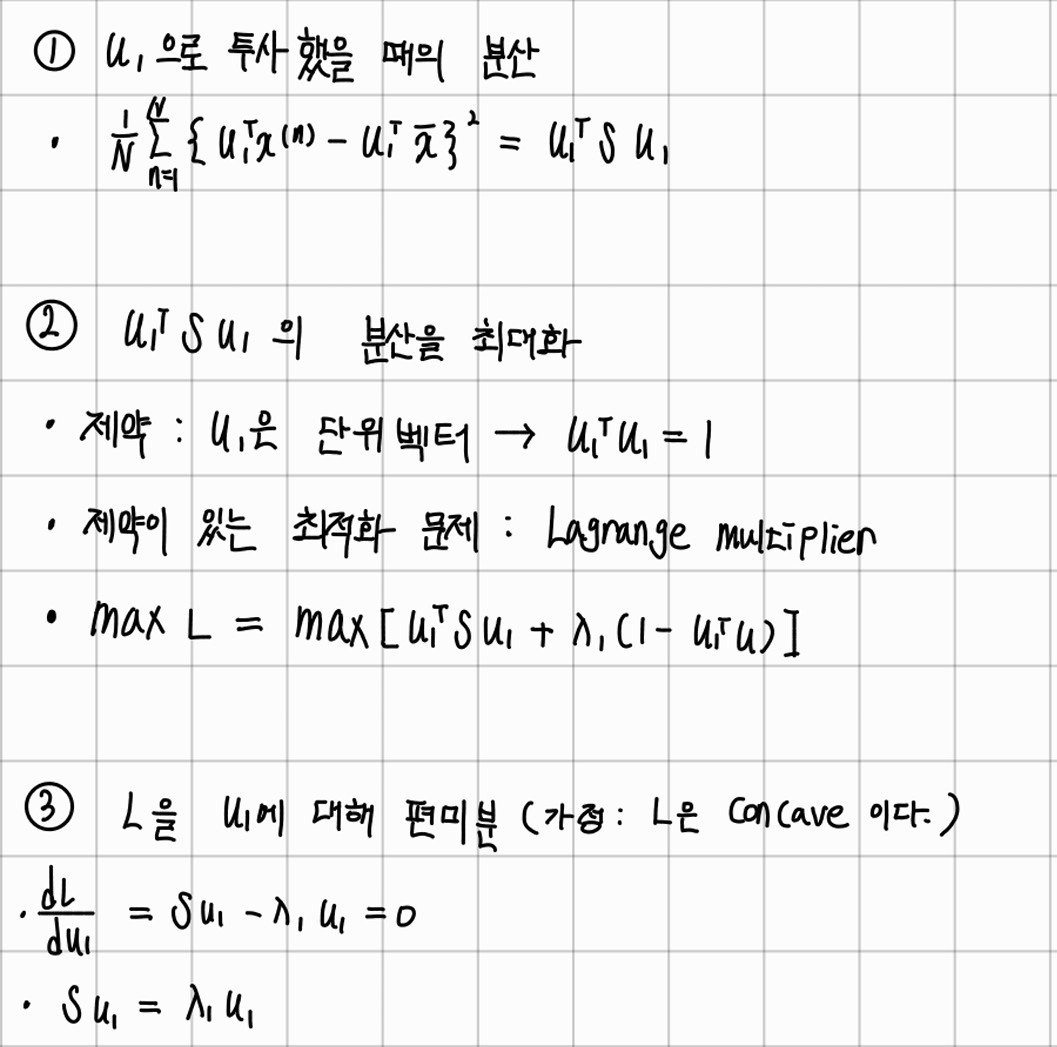 ① u₁으로 투사했을 때의 분산
· 1/N Σₙ₌₁ᴺ {u₁ᵀx⁽ⁿ⁾ - u₁ᵀx̄}² = u₁ᵀSu₁
② u₁ᵀSu₁의 분산을 최대화
· 제약 : u₁은 단위벡터 → u₁ᵀu₁ = 1
· 제약이 있는 최적화 문제 : Lagrange multiplier
· max L = max[u₁ᵀSu₁ + λ₁(1 - u₁ᵀu)]
③ L을 u₁에 대해 편미분 (가정 : L은 concave 이다.)
· dL/du₁ = Su₁ - λ₁u₁ = 0
· Su₁ = λ₁u₁